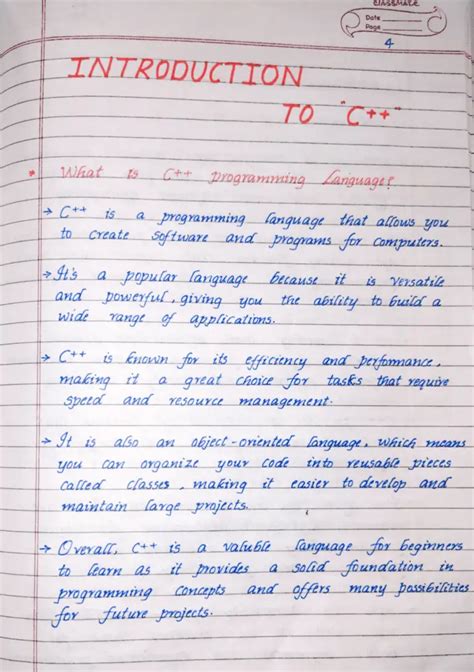 classmate
Date
Page
4
INTRODUCTION
TO "C++"
* What is C++ programming Language?
→ C++ is a programming language that allows you
to create software and programs for computers.
→ It's a popular language because it is versatile
and powerful, giving you the ability to build a
wide range of applications.
→ C++ is known for its efficiency and performance,
making it a great choice for tasks that require
speed and resource management.
→ It is also an object-oriented language, which means
you can organize your code into reusable pieces
called classes, making it easier to develop and
maintain large projects.
→ Overall, C++ is a valuble language for beginners
to learn as it provides a solid foundation in
programming concepts and offers many possibilities
for future projects.